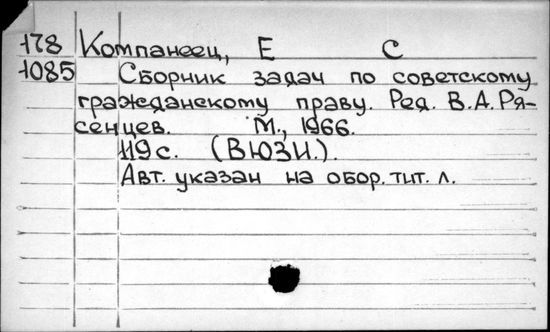 178 Компанеец, Е С
1085 Сборник задач по советскому
гражданскому праву. Ред. В.А. Ря-
сенцев. М., 1966.
119 с. (ВЮЗИ.).
Авт. указан на обор. тит. л.